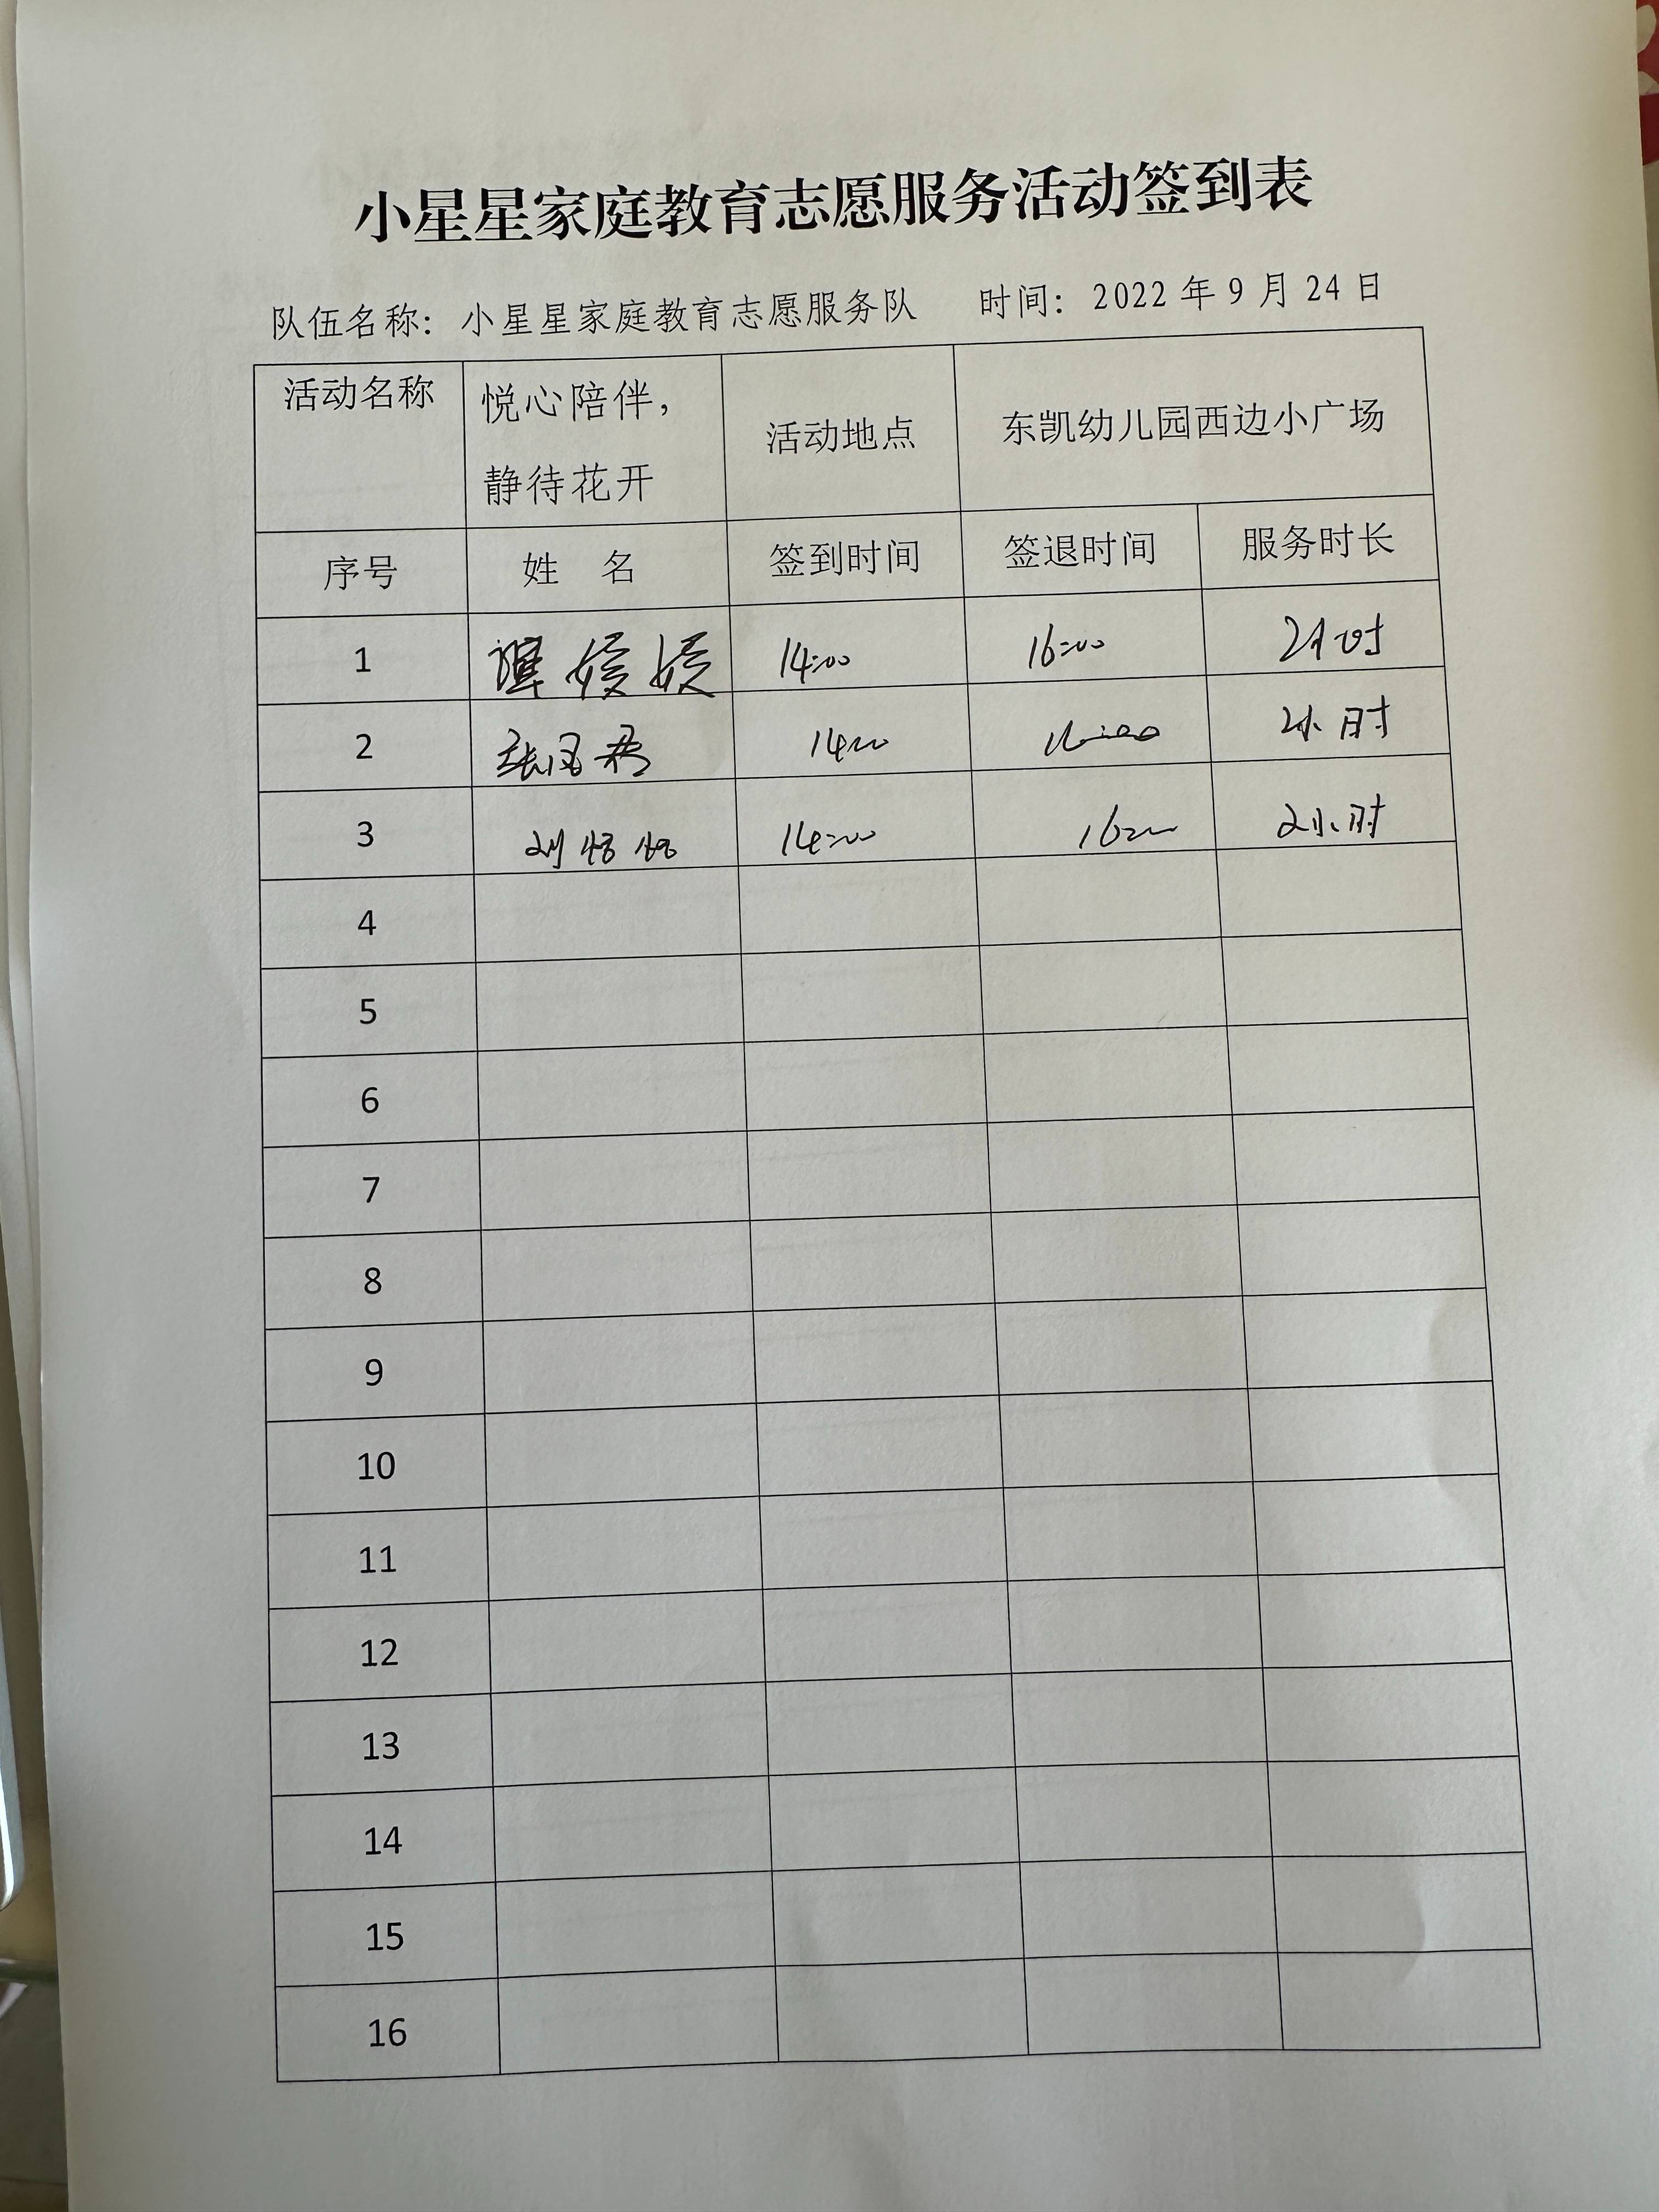 小星星家庭教育志愿服务活动签到表
队伍名称：小星星家庭教育志愿服务队 时间：2022年9月24日
活动名称 悦心陪伴，静待花开 活动地点 东凯幼儿园西边小广场
序号 姓 名 签到时间 签退时间 服务时长
1 14:00 16:00 2小时
2 14:00 16:00 2小时
3 14:00 16:00 2小时
4
5
6
7
8
9
10
11
12
13
14
15
16